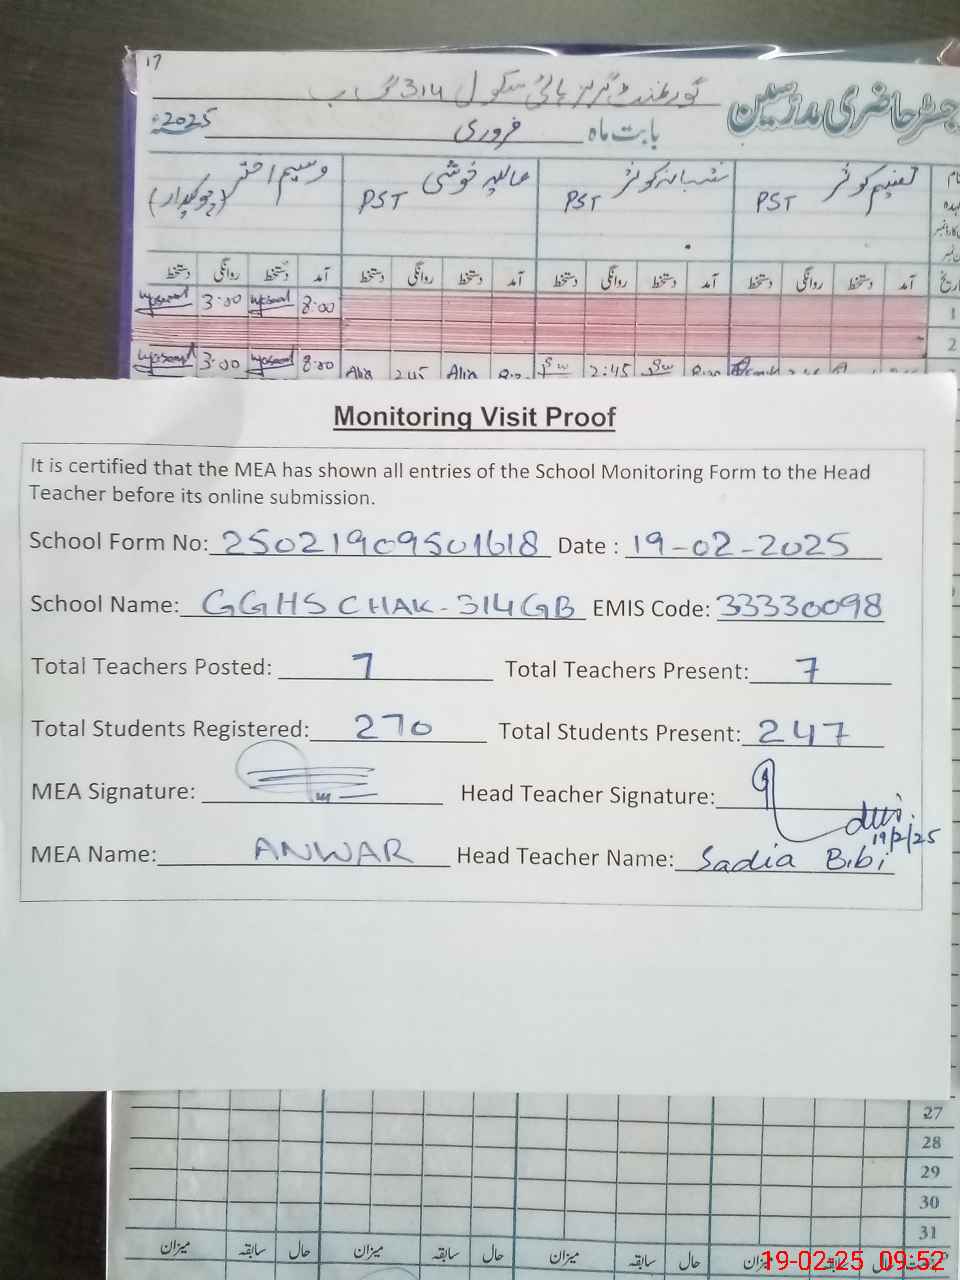 17
رجسٹر حاضری مدرسین
گورنمنٹ گرلز ہائی سکول 314 گ ب
بابت ماہ فروری 2025ء
تسنیم کوثر PST شبانہ کوثر PST عالیہ خوشی PST وسیم اختر (چوکیدار)
تاریخ آمد دستخط روانگی دستخط آمد دستخط روانگی دستخط آمد دستخط روانگی دستخط آمد دستخط روانگی دستخط
1 8:00 3:00
2
8:00 3:00 Alia 2:45 Alia 2:45
Monitoring Visit Proof
It is certified that the MEA has shown all entries of the School Monitoring Form to the Head
Teacher before its online submission.
School Form No: 25021909501618 Date : 19-02-2025
School Name: GGHS CHAK-314GB EMIS Code: 33330098
Total Teachers Posted: 7 Total Teachers Present: 7
Total Students Registered: 270 Total Students Present: 247
MEA Signature: Head Teacher Signature:
19/2/25
MEA Name: ANWAR Head Teacher Name: Sadia Bibi
27
28
29
30
31
حال سابقہ میزان حال سابقہ میزان حال سابقہ میزان حال سابقہ میزان
19-02-25 09:52